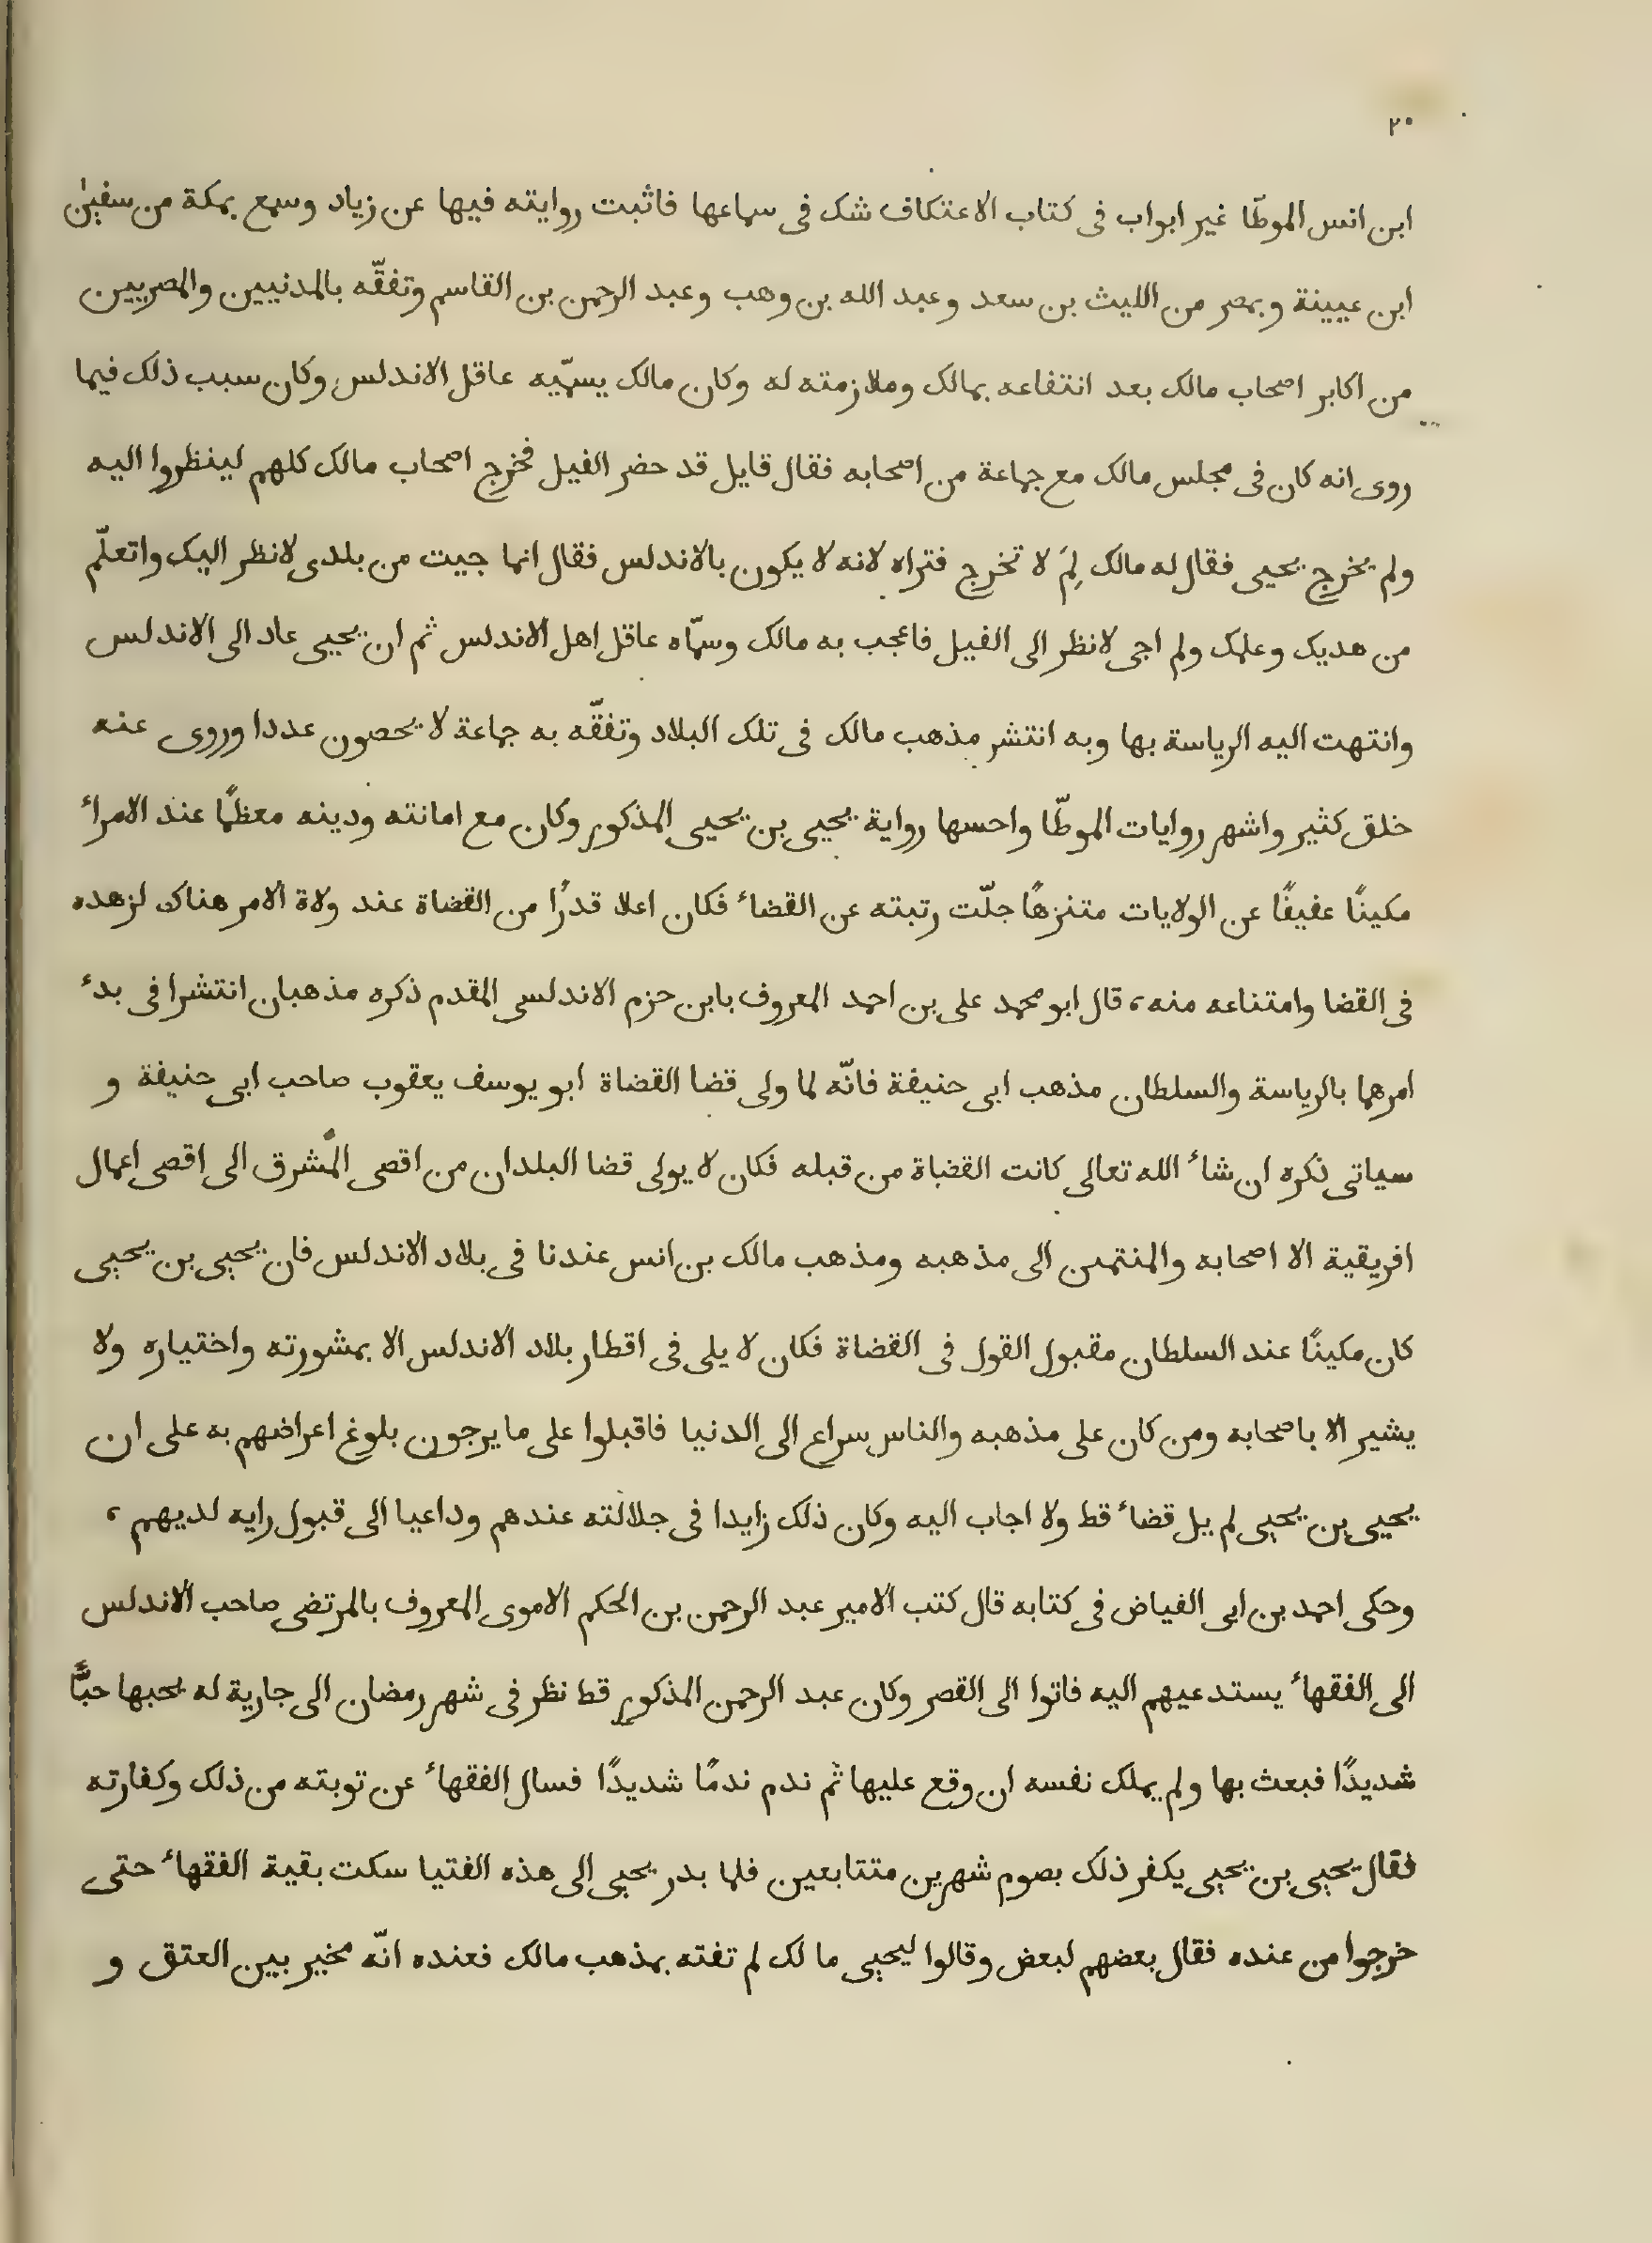 ٢٠
ابن انس الموطّا غير ابواب فى كتاب الاعتكاف شك فى سماعها فاثبت روايته فيها عن زياد وسمع بمكة من سفيٰن
ابن عيينة وبمصر من الليث بن سعد وعبد الله بن وهب وعبد الرحمن بن القاسم وتفقّه بالمدنيين والمصريين
من اكابر اصحاب مالك بعد انتفاعه بمالك وملازمته له وكان مالك يسمّيه عاقل الاندلس وكان سبب ذلك فيما
روى انه كان فى مجلس مالك مع جماعة من اصحابه فقال قايل قد حضر الفيل فخرج اصحاب مالك كلهم لينظروا اليه
ولم يخرج يحيى فقال له مالك لِمَ لا تخرج فتراه لانه لا يكون بالاندلس فقال انما جيت من بلدى لانظر اليك واتعلّم
من هديك وعلمك ولم اجى لانظر الى الفيل فاعجب به مالك وسمّاه عاقل اهل الاندلس ثم ان يحيى عاد الى الاندلس
وانتهت اليه الرياسة بها وبه انتشر مذهب مالك فى تلك البلاد وتفقّه به جماعة لا يحصون عددا وروى عنه
خلق كثير واشهر روايات الموطّا واحسها رواية يحيى بن يحيى المذكور وكان مع امانته ودينه معظمًا عند الامراء
مكينًا عفيفًا عن الولايات متنزهًا جلّت رتبته عن القضاء فكان اعلا قدرًا من القضاة عند ولاة الامر هناك لزهده
فى القضا وامتناعه منه، قال ابو محمد على بن احمد المعروف بابن حزم الاندلسى المقدم ذكره مذهبان انتشرا فى بدء
امرهما بالرياسة والسلطان مذهب ابى حنيفة فانّه لما ولى قضا القضاة ابو يوسف يعقوب صاحب ابى حنيفة و
سياتى ذكره ان شاء الله تعالى كانت القضاة من قبله فكان لا يولى قضا البلدان من اقصى المشرق الى اقصى اعمال
افريقية الا اصحابه والمنتمىن الى مذهبه ومذهب مالك بن انس عندنا فى بلاد الاندلس فان يحيى بن يحيى
كان مكينًا عند السلطان مقبول القول فى القضاة فكان لا يلى فى اقطار بلاد الاندلس الا بمشورته واختياره ولا
يشير الا باصحابه ومن كان على مذهبه والناس سراع الى الدنيا فاقبلوا على ما يرجون بلوغ اعراضهم به على ان
يحيى بن يحيى لم يل قضاء قط ولا اجاب اليه وكان ذلك زايدا فى جلالته عندهم وداعيا الى قبول رايه لديهم ،
وحكى احمد بن ابى الفياض فى كتابه قال كتب الامير عبد الرحمن بن الحكم الاموى المعروف بالمرتضى صاحب الاندلس
الى الفقهاء يستدعيهم اليه فاتوا الى القصر وكان عبد الرحمن المذكور قط نظر فى شهر رمضان الى جارية له يحبها حبًّا
شديدًا فبعث بها ولم يملك نفسه ان وقع عليها ثم ندم ندمًا شديدًا فسال الفقهاء عن توبته من ذلك وكفارته
فقال يحيى بن يحيى يكفر ذلك بصوم شهرين متتابعين فلما بدر يحيى الى هذه الفتيا سكت بقية الفقهاء حتى
خرجوا من عنده فقال بعضهم لبعض وقالوا ليحيى ما لك لم تفته بمذهب مالك فعنده انّه مخير بين العتق و